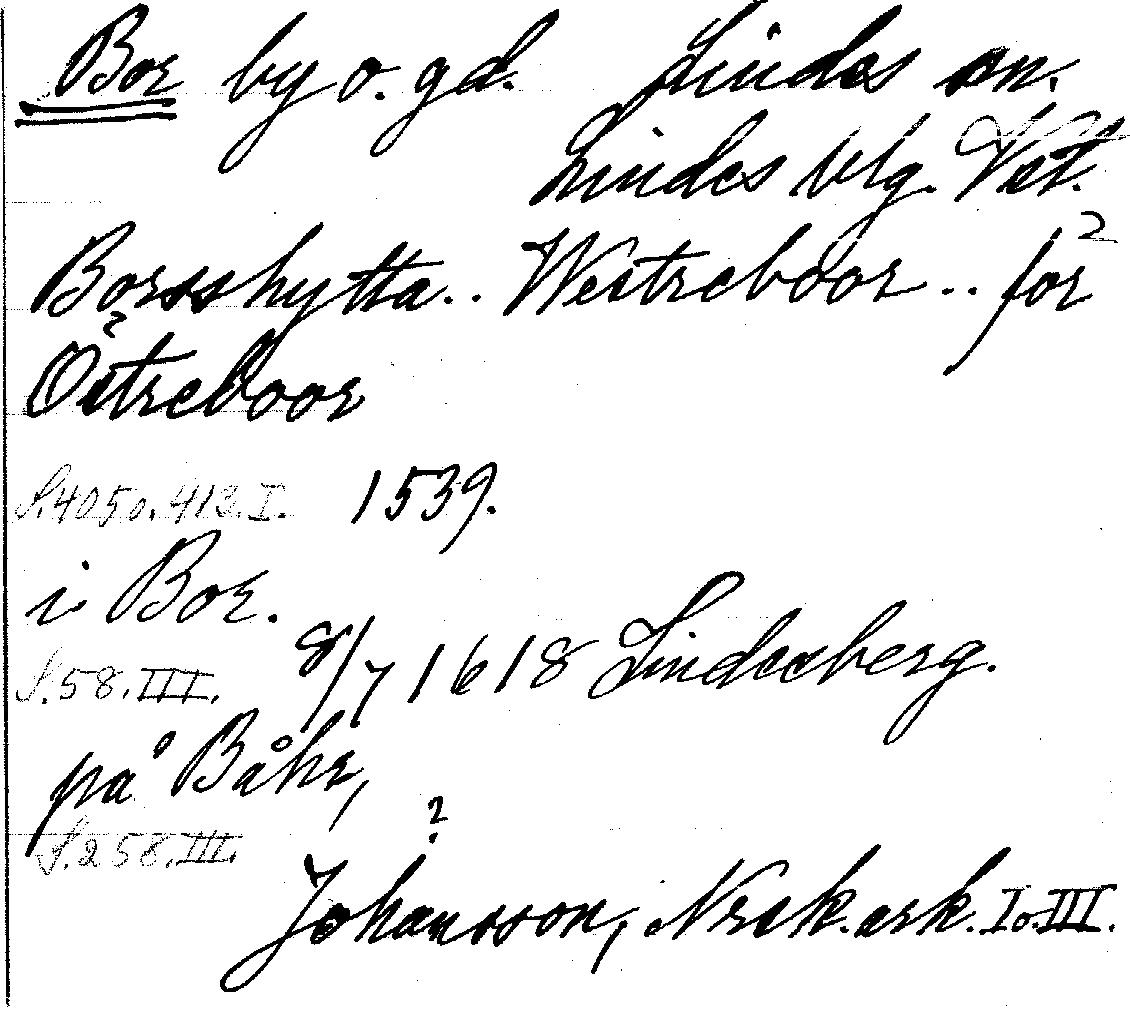 Bor by o. gd. Lindes sn.
Lindes blg. Vstm.
Borsshytta.. Westreboor.. för
Östreboor
S.405 o. 413. I. 1539.
i Bor.
S.58. III. 8/7 1618 Lindesberg.
på Båhr,
S.258. III. ?
Johansson, Norask. ark. I o. III.